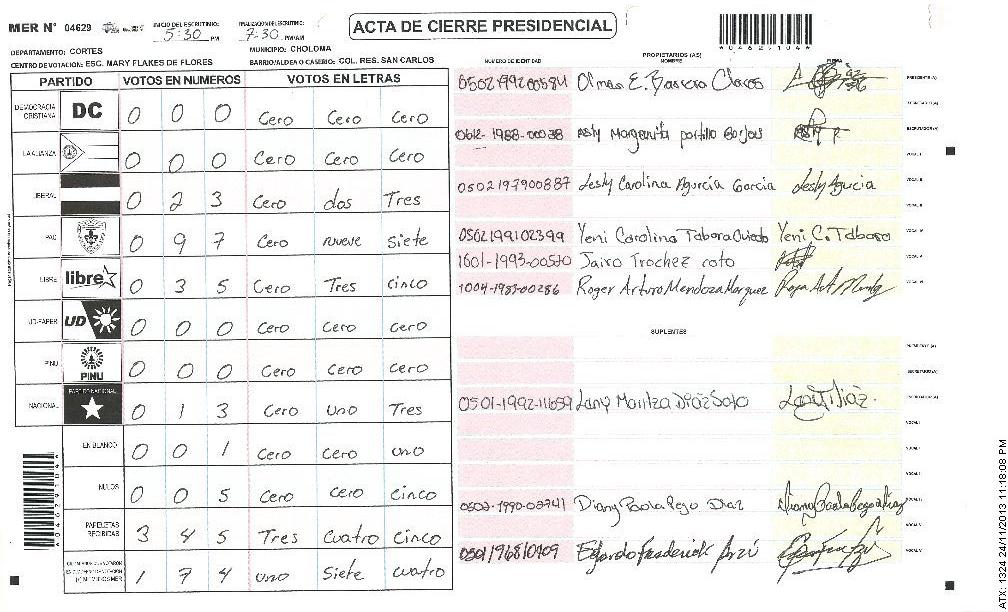 MER N° 04629
INICIO DEL ESCRUTINIO: 5:30 PM
FINALIZACION DEL ESCRUTINIO: 7:30 PM/AM
ACTA DE CIERRE PRESIDENCIAL
DEPARTAMENTO: CORTES
MUNICIPIO: CHOLOMA
CENTRO DE VOTACION: ESC. MARY FLAKES DE FLORES
BARRIO/ALDEA O CASERIO: COL. RES. SAN CARLOS
PARTIDO VOTOS EN NUMEROS VOTOS EN LETRAS
DEMOCRACIA CRISTIANA DC 0 0 0 Cero Cero Cero
LA ALIANZA 0 0 0 Cero Cero Cero
LIBERAL 0 23 Cero dos Tres
PAC 0 97 Cero nueve siete
LIBRE libre 0 3 5 Cero Tres cinco
UD-FAPER UD 0 0 0 Cero Cero Cero
PINU PINU 0 0 0 Cero Cero Cero
NACIONAL PARTIDO NACIONAL 0 1 3 Cero Uno Tres
EN BLANCO 0 0 1 Cero Cero uno
NULOS 0 0 5 Cero Cero Cinco
PAPELETAS RECIBIDAS 3 4 5 Tres Cuatro Cinco
1 7 4 uno Siete cuatro
PROPIETARIOS (AS)
NUMERO DE IDENTIDAD NOMBRE FIRMA
Olman E. PRESIDENTE (A)
SECRETARIO (A)
0612-1988-00038 Margarita Portillo ESCRUTADOR (A)
VOCAL I
0502197900887 Lesly Carolina Agurcia Garcia Lesly Agurcia VOCAL II
0502199102399 Yeni Carolina Tabora Oviedo Yeni C. Tabora VOCAL IV
1601-1993-00520 Jairo Trochez VOCAL V
1004-1983-00286 Roger Arturo Mendoza Marquez VOCAL VI
SUPLENTES
PRESIDENTE (A)
SECRETARIO (A)
0501-1992-11659 Lany Maritza Diaz Soto ESCRUTADOR (A)
VOCAL I
0502-1990-02741 Diany Paola Diaz
Edgardo Frederick
A04629104A
ATX: 1324 24/11/2013 11:18:08 PM